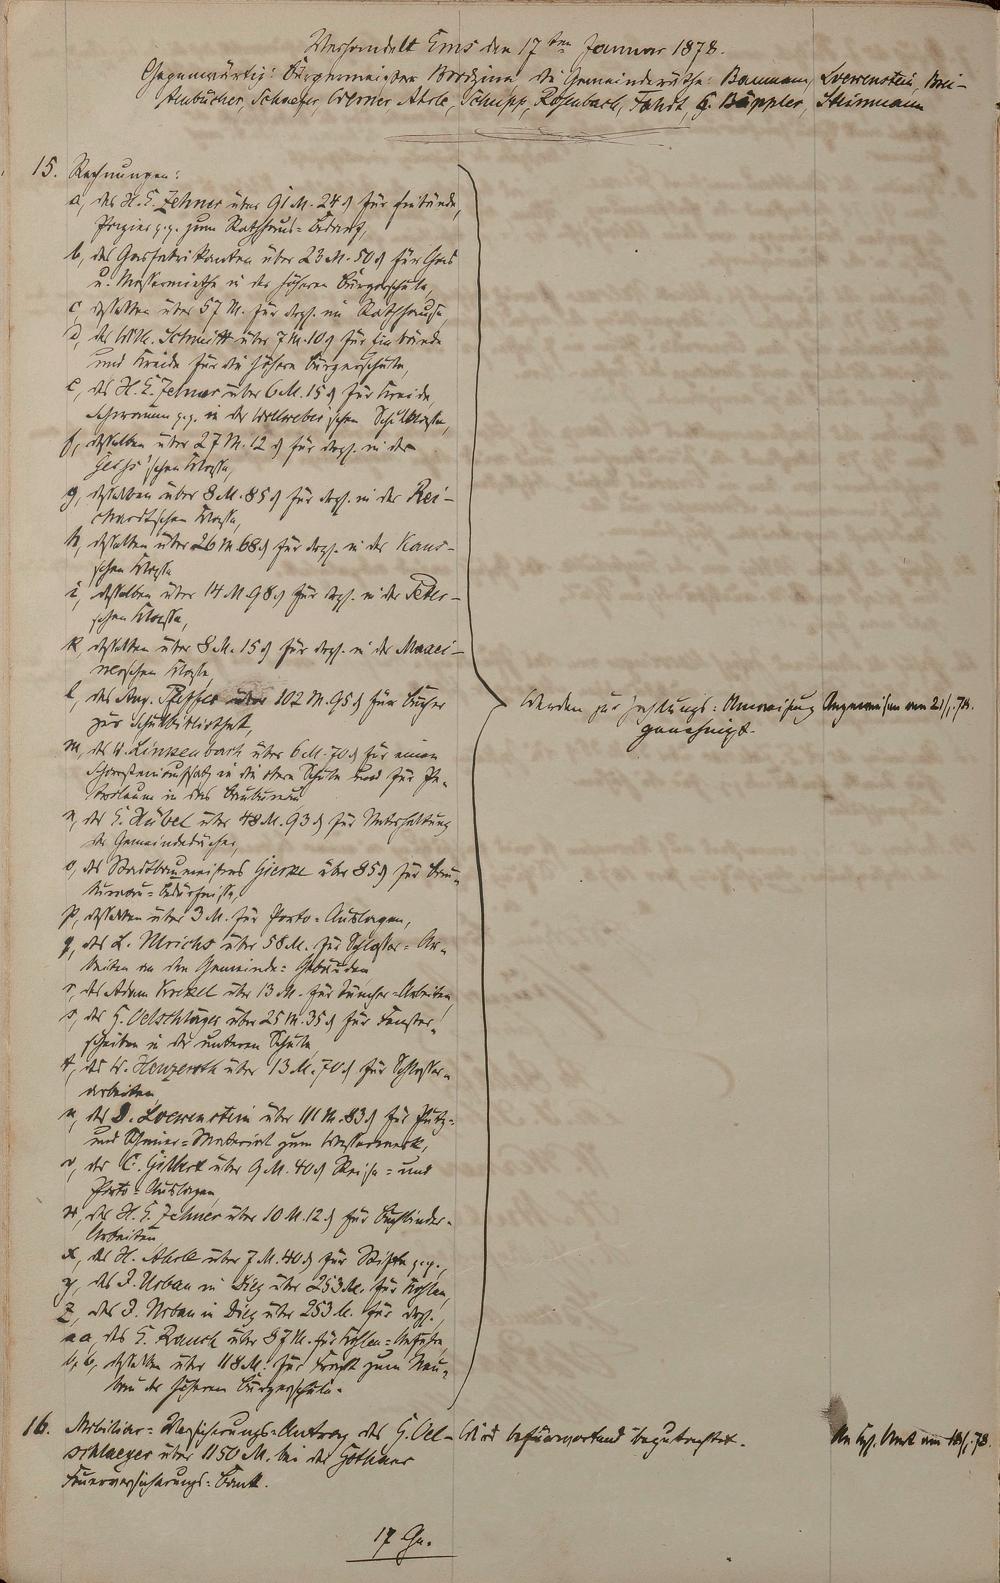 Verhandelt Ems den 17ten Januar 1878.
Gegenwärtig: Bürgermeister die Gemeinderäthe: Baumann, Loewenstein, Bau-
Schaefer, Werner, Ahrle, Schupp, Rosenbach, Fahdt, G. Bäppler, Steinmann
15. Rechnungen:
a, des H. E. Zehner über 91 M. 24 ₰ für Einbände,
Papier p.p. zum Rathhaus-Bedarf,
b, des Gasfabrikanten über 23 M. 50 ₰ für Gas
u. Messermiethe in der höheren Bürgerschule,
c, desselben über 57 M. für dgl. im Rathhause,
d, des Wilh. Schmitt über 7 M. 10 ₰ für Einbände
und Kreide für die höhere Bürgerschule,
e, des H. E. Zehner über 6 M. 15 ₰ für Kreide,
Schwämme p.p. in der Wollweber'schen Schulklasse,
f, desselben über 27 M. 12 ₰ für dergl. in der
schen Klasse,
g, desselben über 8 M. 85 ₰ für dergl. in der Rei-
chardt'schen Klasse,
h, desselben über 26 M 68 ₰ für dergl. in der Kaus-
schen Klasse
i, desselben über 14 M. 98 ₰ für dergl. in der Peter-
schen Klasse,
k, desselben über 8 M. 15 ₰ für dergl. in der
schen Klasse,
l, des Aug. Pfeffer über 102 M. 95 ₰ für Bücher
zur Schulbibliothek,
m, des W. Linkenbach über 6 M. 70 ₰ für einen
Schornsteinaufsatz in die obere Schule und für Pe-
troleum in das Baubureau
n, des G. Hübel über 48 M. 93 ₰ für Unterhaltung
der Gemeindedächer,
o, des Stadtbaumeisters Gierke über 85 ₰ für Bau-
bureau-Bedürfnisse,
p, desselben über 3 M. für Porto-Auslagen,
q, des L. Ulrichs über 58 M. für Schlosser-Ar-
beiten an den Gemeinde-Gebäuden
r, des Adam Krekel über 13 M. für Tüncher-Arbeiten,
s, des G. Oelschläger über 25 M. 35 ₰ für Fenster-
scheiben in der unteren Schule,
t, des W. Henzeroth über 13 M. 70 ₰ für Schlosser-
arbeiten,
u, des D. Loewenstein über 111 M. 83 ₰ für Putz-
und Schmier-Material zum Wasserwerk,
v, des C. Gilbert über 9 M. 40 ₰ Reise- und
Porto-Auslagen,
w, des H. E. Zehner über 10 M. 12 ₰ für Buchbinder-
Arbeiten
x, des H. Ahrle über 7 M. 40 ₰ für Stifte p.p.,
y, des J. Urban in Diez über 253 M. für Kohlen,
z, des J. Urban in Diez über 253 M. für dergl.,
aa, des G. Rauch über 87 M. für Kohlen-Anfuhr,
b,b, desselben über 118 M. für Fracht zum Neu-
bau der höheren Bürgerschule.
Werden zur Zahlungs-Anweisung
genehmigt.
Angewiesen am 21/1.78.
16. Mobiliar-Versicherungs-Antrag des G. Oel-
schlaeger über 1150 M. bei der Gothaer
Feuerversicherungs-Bank.
Wird befürwortend begutachtet.
An Kgl. Amt am 18/1.78.
17 Gn.